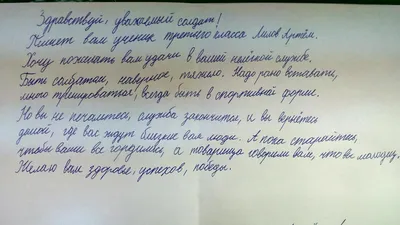 Здравствуй, уважаемый солдат!
Пишет вам ученик третьего класса Лимов Артём.
Хочу пожелать вам удачи в вашей нелёгкой службе.
Быть солдатом, наверное, тяжело. Надо рано вставать,
много тренироваться, всегда быть в спортивной форме.
Но вы не печальтесь, служба закончится, и вы вернётесь
домой, где вас ждут близкие вам люди. А пока старайтесь,
чтобы вами все гордились, а товарищи говорили вам, что вы молодец.
Желаю вам здоровья, успехов, победы.